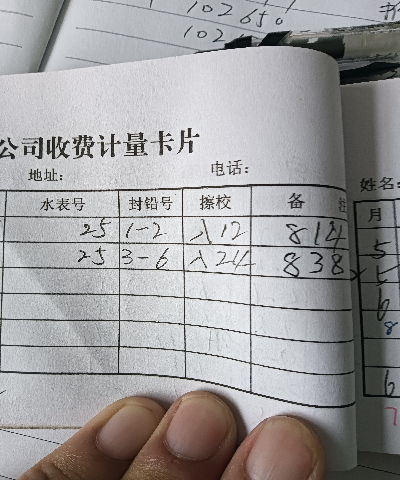 102650
公司收费计量卡片
地址： 电话： 姓名：
水表号 封铅号 擦校 备 注 月
25 1-2 入12 814 5
25 3-6 入24 838 5
6
8
6
7